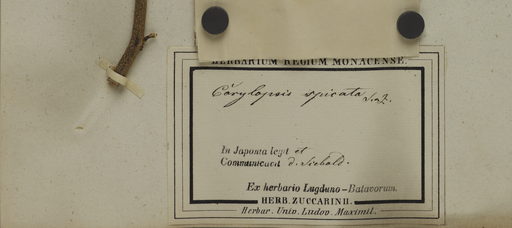 HERBARIUM REGIUM MONACENSE.
Corylopsis spicata S. et Z.
In Japonia legit et
Communicavit d. Siebold.
Ex herbario Lugduno-Batavorum.
HERB. ZUCCARINII.
Herbar. Univ. Ludov. Maximil.